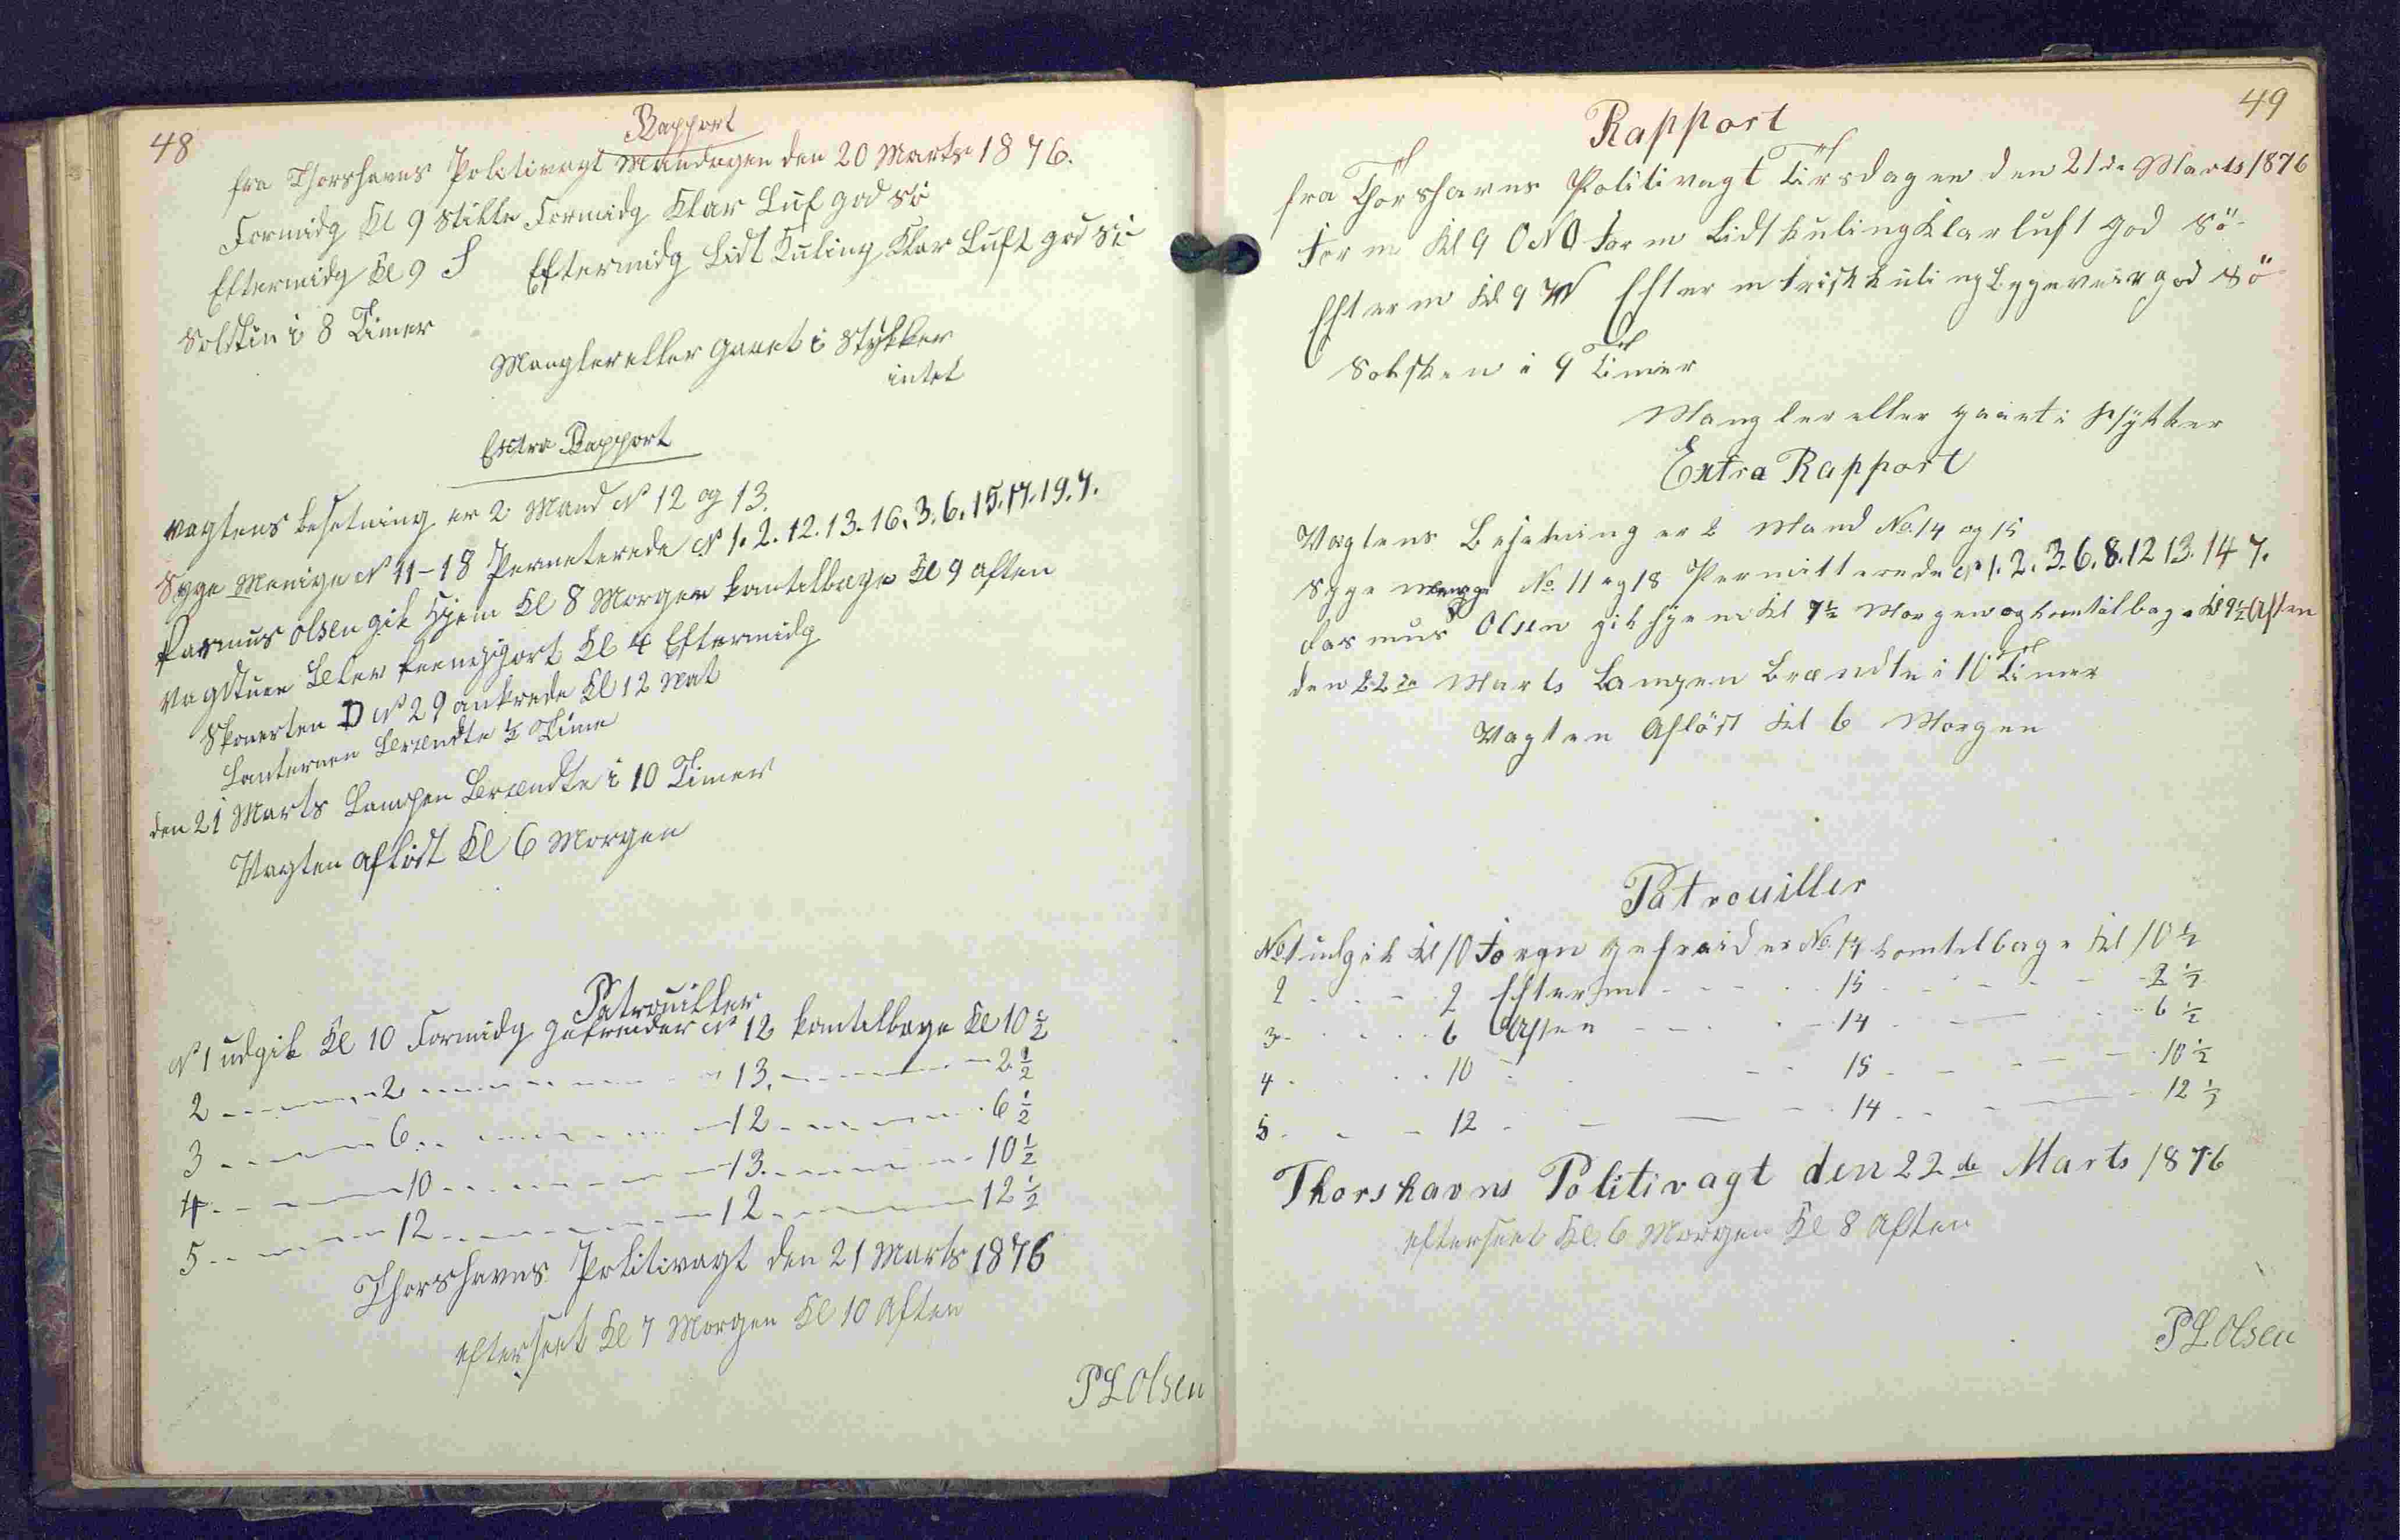 48
Rapport
fra Thorshavns Politivagt Mandagen den 20 Marts 1876.
Formidg Kl 9 Stille Formidg Klar Luf god Sö
Eftermidg Kl 9 S Eftermidg Lidt Kuling Klar Luft god Sö
Solskin i 8 Timer
Mangler eller gaaet i Stykker
intet
Extra Rapport
Vagtens besetning er 2 Mand No 12 og 13.
Syge Menige No 11-18 Permeterede No 1. 2. 12. 13. 16. 3. 6. 15. 17. 19. 7.
Rasmus Olsen gik Hjem Kl 8 Morgen komtilbage Kl 9 Aften
Vagstuen blev reengjort Kl 4 Eftermidg
Skonerten D No 29 ankrede Kl 12 Nat
Lanternen Brændte ½ Time
den 21 Marts Lampen Brændte i 10 Timer
Vagten aflöst Kl 6 Morgen
Patrouiller
No 1 udgik Kl 10 Formidg gefreider No 12 komtilbage Kl 10 ½
2 - - - 2 - - - 13. - - - 2 ½
3 - - - 6 - - - 12 - - - 6 ½
4 - - - 10 - - - 13. - - - 10 ½
5 - - - 12 - - - 12 - - - 12 ½
Thorshavns Politivagt den 21 Marts 1876
efterseet Kl 7 Morgen Kl 10 Aften
P L Olsen
49
Rapport
fra Thorshavns Politivagt Tirsdagen den 21de Marts 1876
Form Kl 9 ONO Form Lidt kuling Klar luft god Sö
Efterm Kl 9 W Efterm frisk kuling bygeveir god Sö
Solsken i 9 Timer
Mangler eller gaaet i Stykker
Extra Rapport
Vagtens Besetning er 2 Mand No. 14 og 15
Syge Menige No 11 og 18 Permitterede No 1. 2. 3. 6. 8. 12 13. 14 7.
Rasmus Olsen gik hjem Kl 7½ Morgen og komtilbage Kl 9½ Aften
den 22de Marts Lampen Brændte i 10 Timer
Vagten Aflöst Kl 6 Morgen
Patrouiller
No 1 udgik Kl 10 Formn gefreider No. 14 komtilbage Kl 10 ½
2 - - - 2 Efterm - - - 15 - - - 2 ½
3 - - - 6 Aften - - - 14 - - - 6 ½
4 - - - 10 - - - 15 - - - 10 ½
5 - - - 12 - - - 14 - - - 12 ½
Thorshavns Politivagt den 22de Marts 1876
efterseet Kl. 6 Morgen Kl 8 Aften
P L Olsen